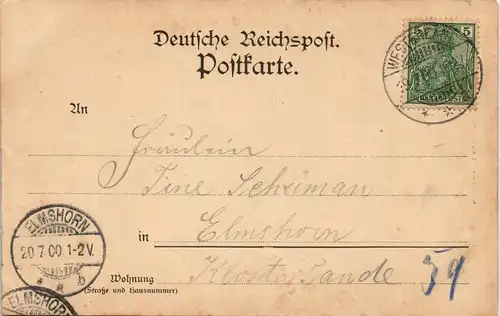 Deutsche Reichspost.
Postkarte.
5
An
Fräulein
Tine
in Elmshorn
Wohnung Klostersande 59
(Straße und Hausnummer)
ELMSHORN
20.7.00.1-2V.
b
ELMSHORN